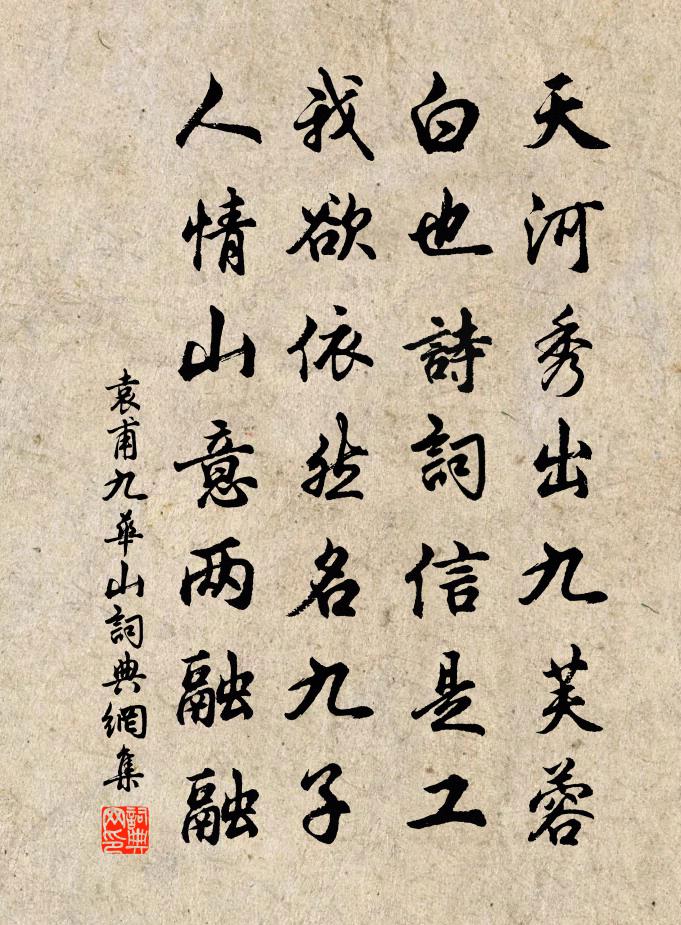 天河秀出九芙蓉
白也詩詞信是工
我欲依然名九子
人情山意两融融
袁甫九華山詞典網集
詞典网印